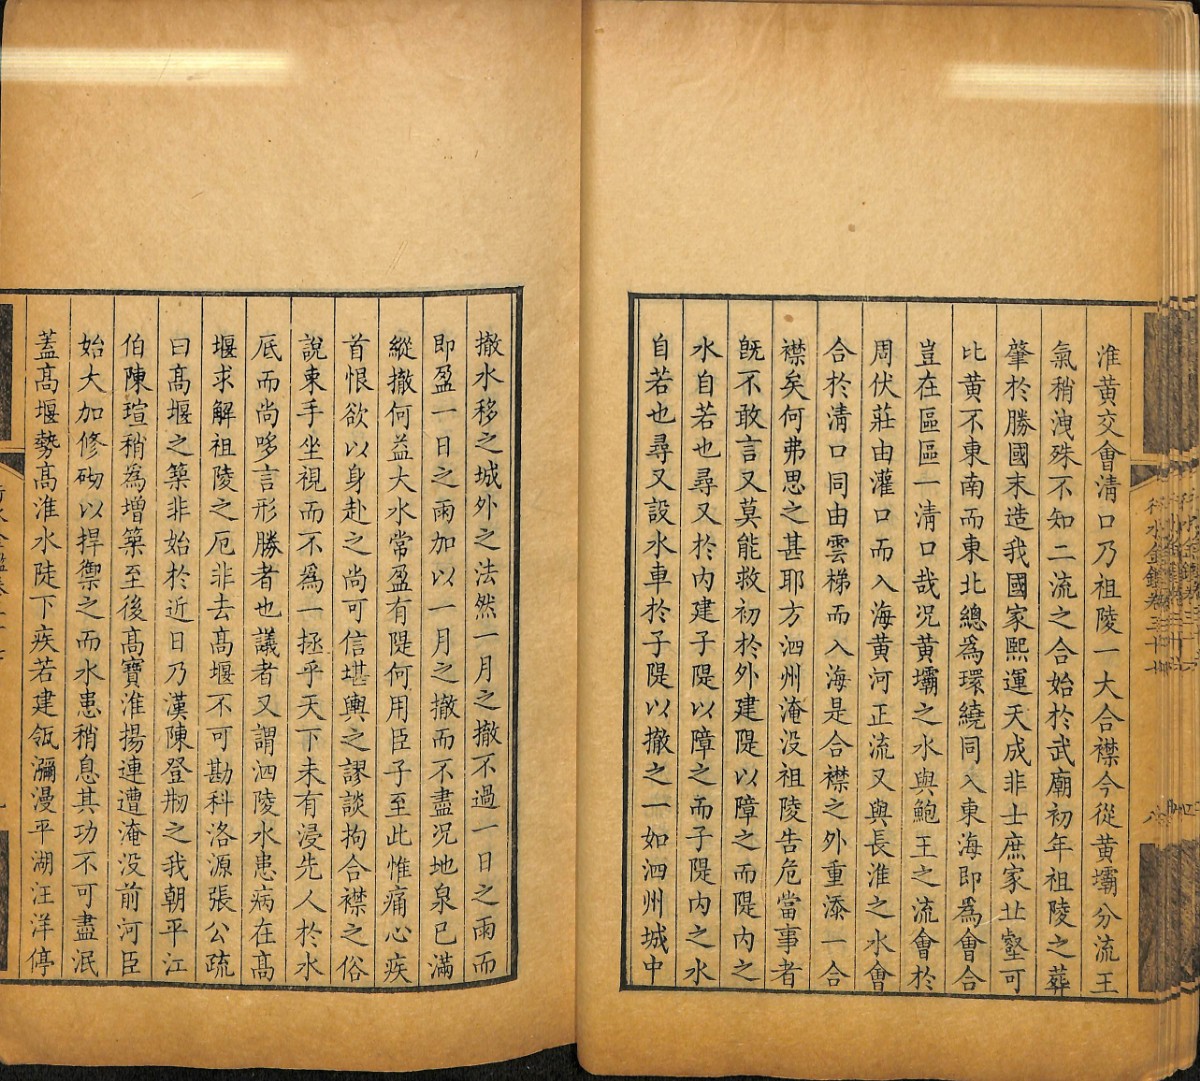 淮黃交會淸口乃祖陵一大合襟今從黃壩分流王
氣稍洩殊不知二流之合始於武廟初年祖陵之葬
肇於勝國末造我國家熙運天成非士庶家丠壑可
比黃不東南而東北總爲環繞同入東海即爲會合
豈在區區一淸口哉况黃壩之水與鮑王之流會於
周伏莊由灌口而入海黃河正流又與長淮之水會
合於淸口同由雲梯而入海是合襟之外重添一合
襟矣何弗思之甚耶方泗州淹没祖陵告危當事者
旣不敢言又莫能救初於外建隄以障之而隄内之
水自若也尋又於内建子隄以障之而子隄内之水
自若也尋又設水車於子隄以撤之一如泗州城中
撤水移之城外之法然一月之撤不過一日之雨而
即盈一日之雨加以一月之撤而不盡况地泉已滿
縱撤何益大水常盈有隄何用臣子至此惟痛心疾
首恨欲以身赴之尚可信堪輿之謬談拘合襟之俗
說束手坐視而不爲一拯乎天下未有浸先人於水
底而尚哆言形勝者也議者又謂泗陵水患病在高
堰求解祖陵之厄非去高堰不可勘科洛源張公疏
曰高堰之築非始於近日乃漢陳登刱之我朝平江
伯陳瑄稍爲增築至後高寶淮揚連遭淹没前河臣
始大加修砌以捍禦之而水患稍息其功不可盡泯
蓋高堰勢高淮水陡下疾若建瓴瀰漫平湖汪洋停